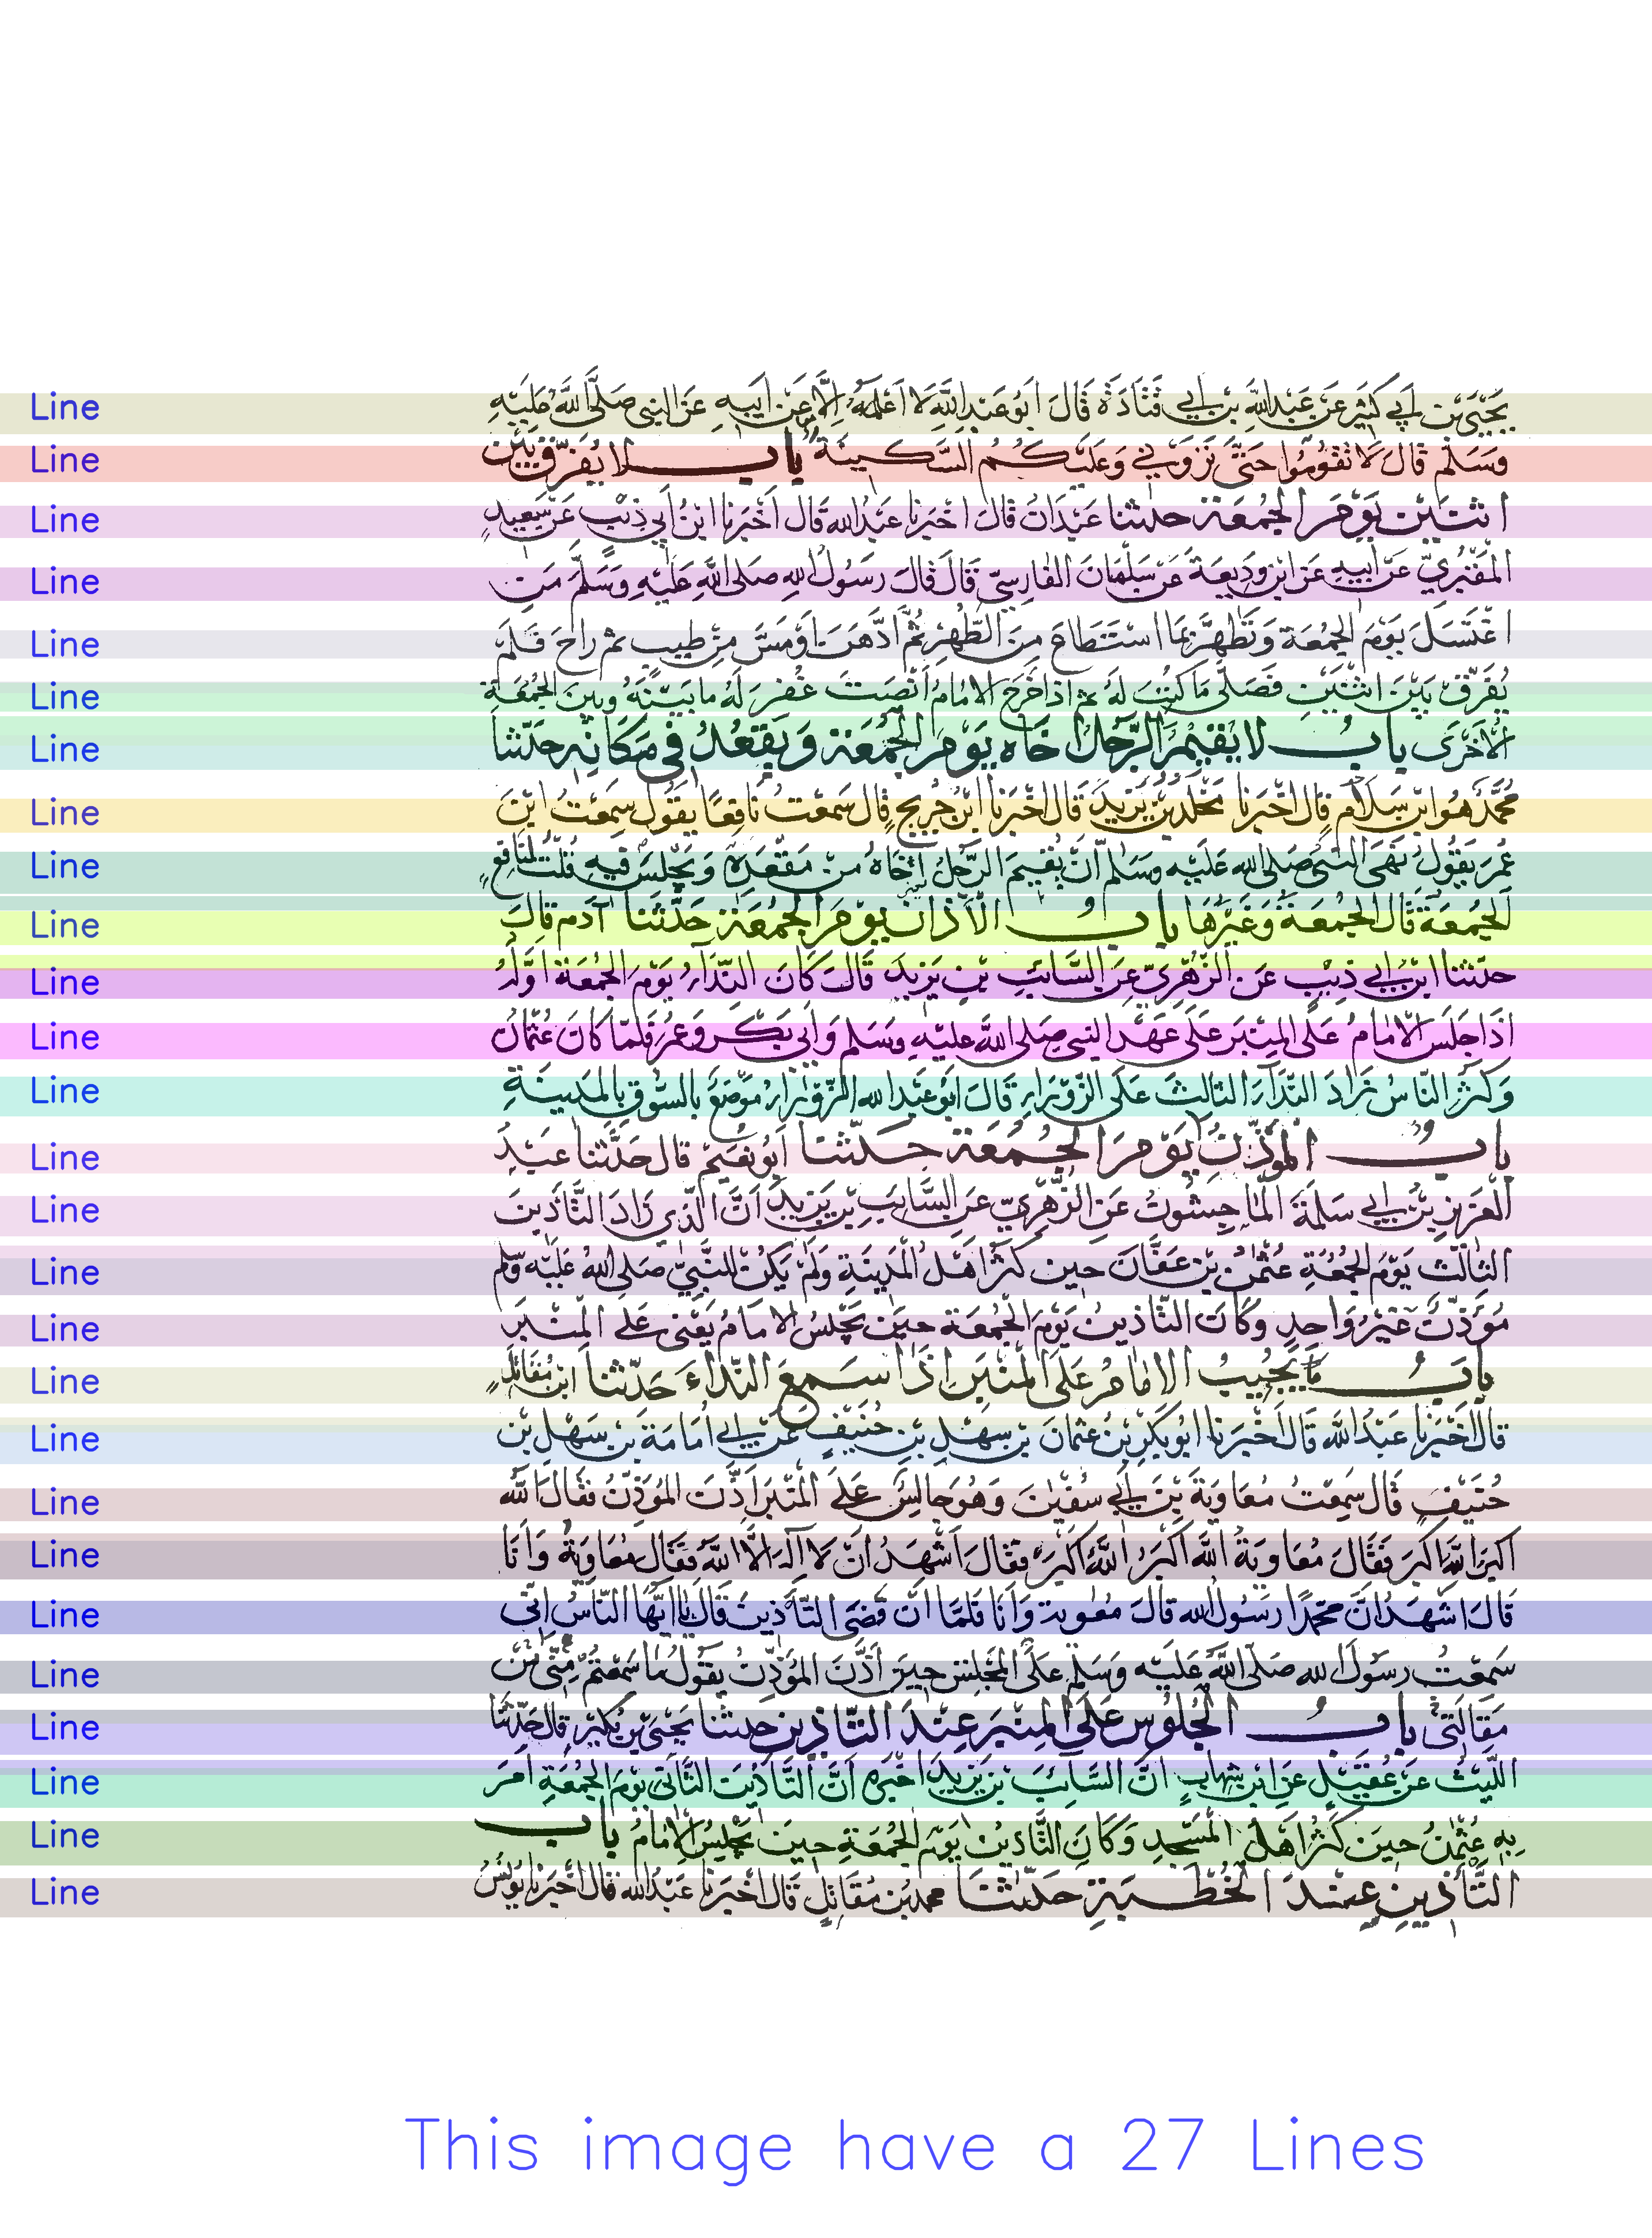 Line يحيى بن ابي كثير عن عبد الله بن ابي قتادة قال ابو عبد الله لا اعلمه الا عن ابيه عن النبي صلى الله عليه
Line وسلم قال لا تقوموا حتى تروني وعليكم السكينة باب لا يفرق بين
Line اثنين يوم الجمعة حدثنا عبدان قال اخبرنا عبد الله قال اخبرنا ابن ابي ذئب عن سعيد
Line المقبري عن ابيه عن ابن وديعة عن سلمان الفارسي قال قال رسول الله صلى الله عليه وسلم من
Line اغتسل يوم الجمعة وتطهر بما استطاع من الطهر ثم ادهن او مس من طيب ثم راح فلم
Line يفرق بين اثنين فصلى ما كتب له ثم اذا خرج الامام انصت غفر له ما بينه وبين الجمعة
Line الاخرى باب لا يقيم الرجل اخاه يوم الجمعة ويقعد في مكانه حدثنا
Line محمد هو ابن سلام قال اخبرنا مخلد بن يزيد قال اخبرنا ابن جريج قال سمعت نافعا يقول سمعت ابن
Line عمر يقول نهى النبي صلى الله عليه وسلم ان يقيم الرجل اخاه من مقعده ويجلس فيه قلت لنافع
Line الجمعة قال الجمعة وغيرها باب الاذان يوم الجمعة حدثنا آدم قال
Line حدثنا ابن ابي ذئب عن الزهري عن السائب بن يزيد قال كان النداء يوم الجمعة اوله
Line اذا جلس الامام على المنبر على عهد النبي صلى الله عليه وسلم وابي بكر وعمر فلما كان عثمان
Line وكثر الناس زاد النداء الثالث على الزوراء قال ابو عبد الله الزوراء موضع بالسوق بالمدينة
Line باب المؤذن يوم الجمعة حدثنا ابو نعيم قال حدثنا عبد
Line العزيز بن ابي سلمة الماجشون عن الزهري عن السائب بن يزيد ان الذي زاد التاذين
Line الثالث يوم الجمعة عثمن بن عفان حين كثر اهل المدينة ولم يكن للنبي صلى الله عليه وسلم
Line مؤذن غير واحد وكان التاذين يوم الجمعة حين يجلس الامام يعني على المنبر
Line باب ما يجيب الامام على المنبر اذا سمع النداء حدثنا ابن مقاتل
Line قال اخبرنا عبد الله قال اخبرنا ابو بكر بن عثمان بن سهل بن حنيف عن ابي امامة بن سهل بن
Line حنيف قال سمعت معاوية بن ابي سفين وهو جالس على المنبر اذن المؤذن فقال الله
Line اكبر الله اكبر فقال معاوية الله اكبر الله اكبر فقال اشهد ان لا اله الا الله فقال معاوية وانا
Line قال اشهد ان محمدا رسول الله قال معوية وانا فلما ان قضى التاذين قال يا ايها الناس اني
Line سمعت رسول الله صلى الله عليه وسلم على المجلس حين اذن المؤذن يقول ما سمعتم مني من
Line مقالتي باب الجلوس على المنبر عند التاذين حدثنا يحيى بن بكير قال حدثنا
Line الليث عن عقيل عن ابن شهاب ان السائب بن يزيد اخبره ان التاذين الثاني يوم الجمعة امر
Line به عثمن حين كثر اهل المسجد وكان التاذين يوم الجمعة حين يجلس الامام باب
Line التاذين عند الخطبة حدثنا محمد بن مقاتل قال اخبرنا عبد الله قال اخبرنا يونس
This image have a 27 Lines